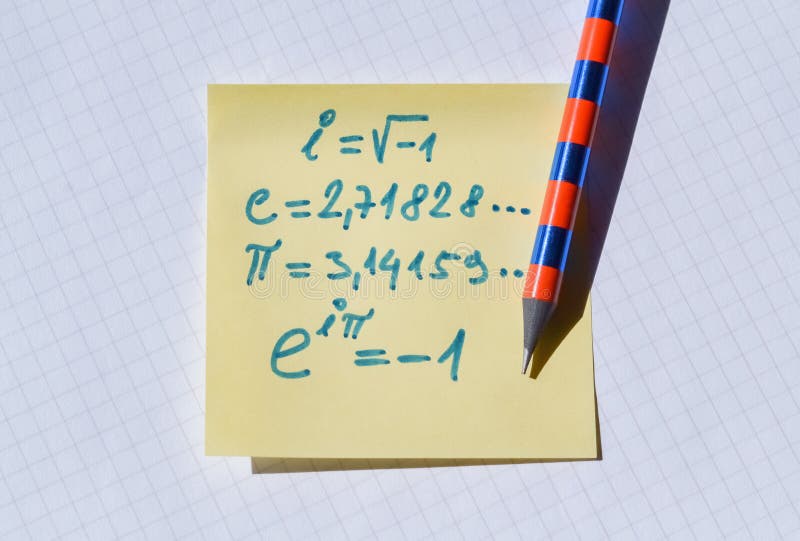 i = √-1
e = 2,71828...
π = 3,14159...
e^{iπ} = -1